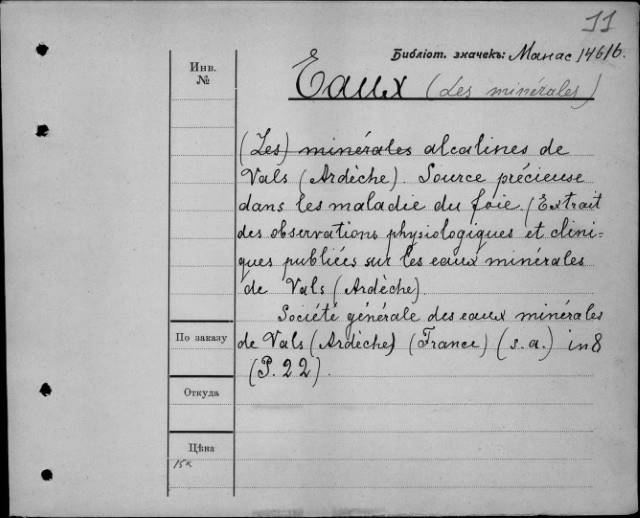 11
Библіот. значекъ: Манас 1461б.
Инв.
№
Eaux (Les minérales)
(Les) minérales alcalines de
Vals (Ardèche). Source précieuse
dans les maladie du foie. (Extrait
des observations physiologiques et clini=
ques publiées sur les eaux minérales
de Vals (Ardèche).
Société générale des eaux minérales
По заказу
de Vals (Ardèche) (France) (s.a.) in 8
(P. 22).
Откуда
Цѣна
15к